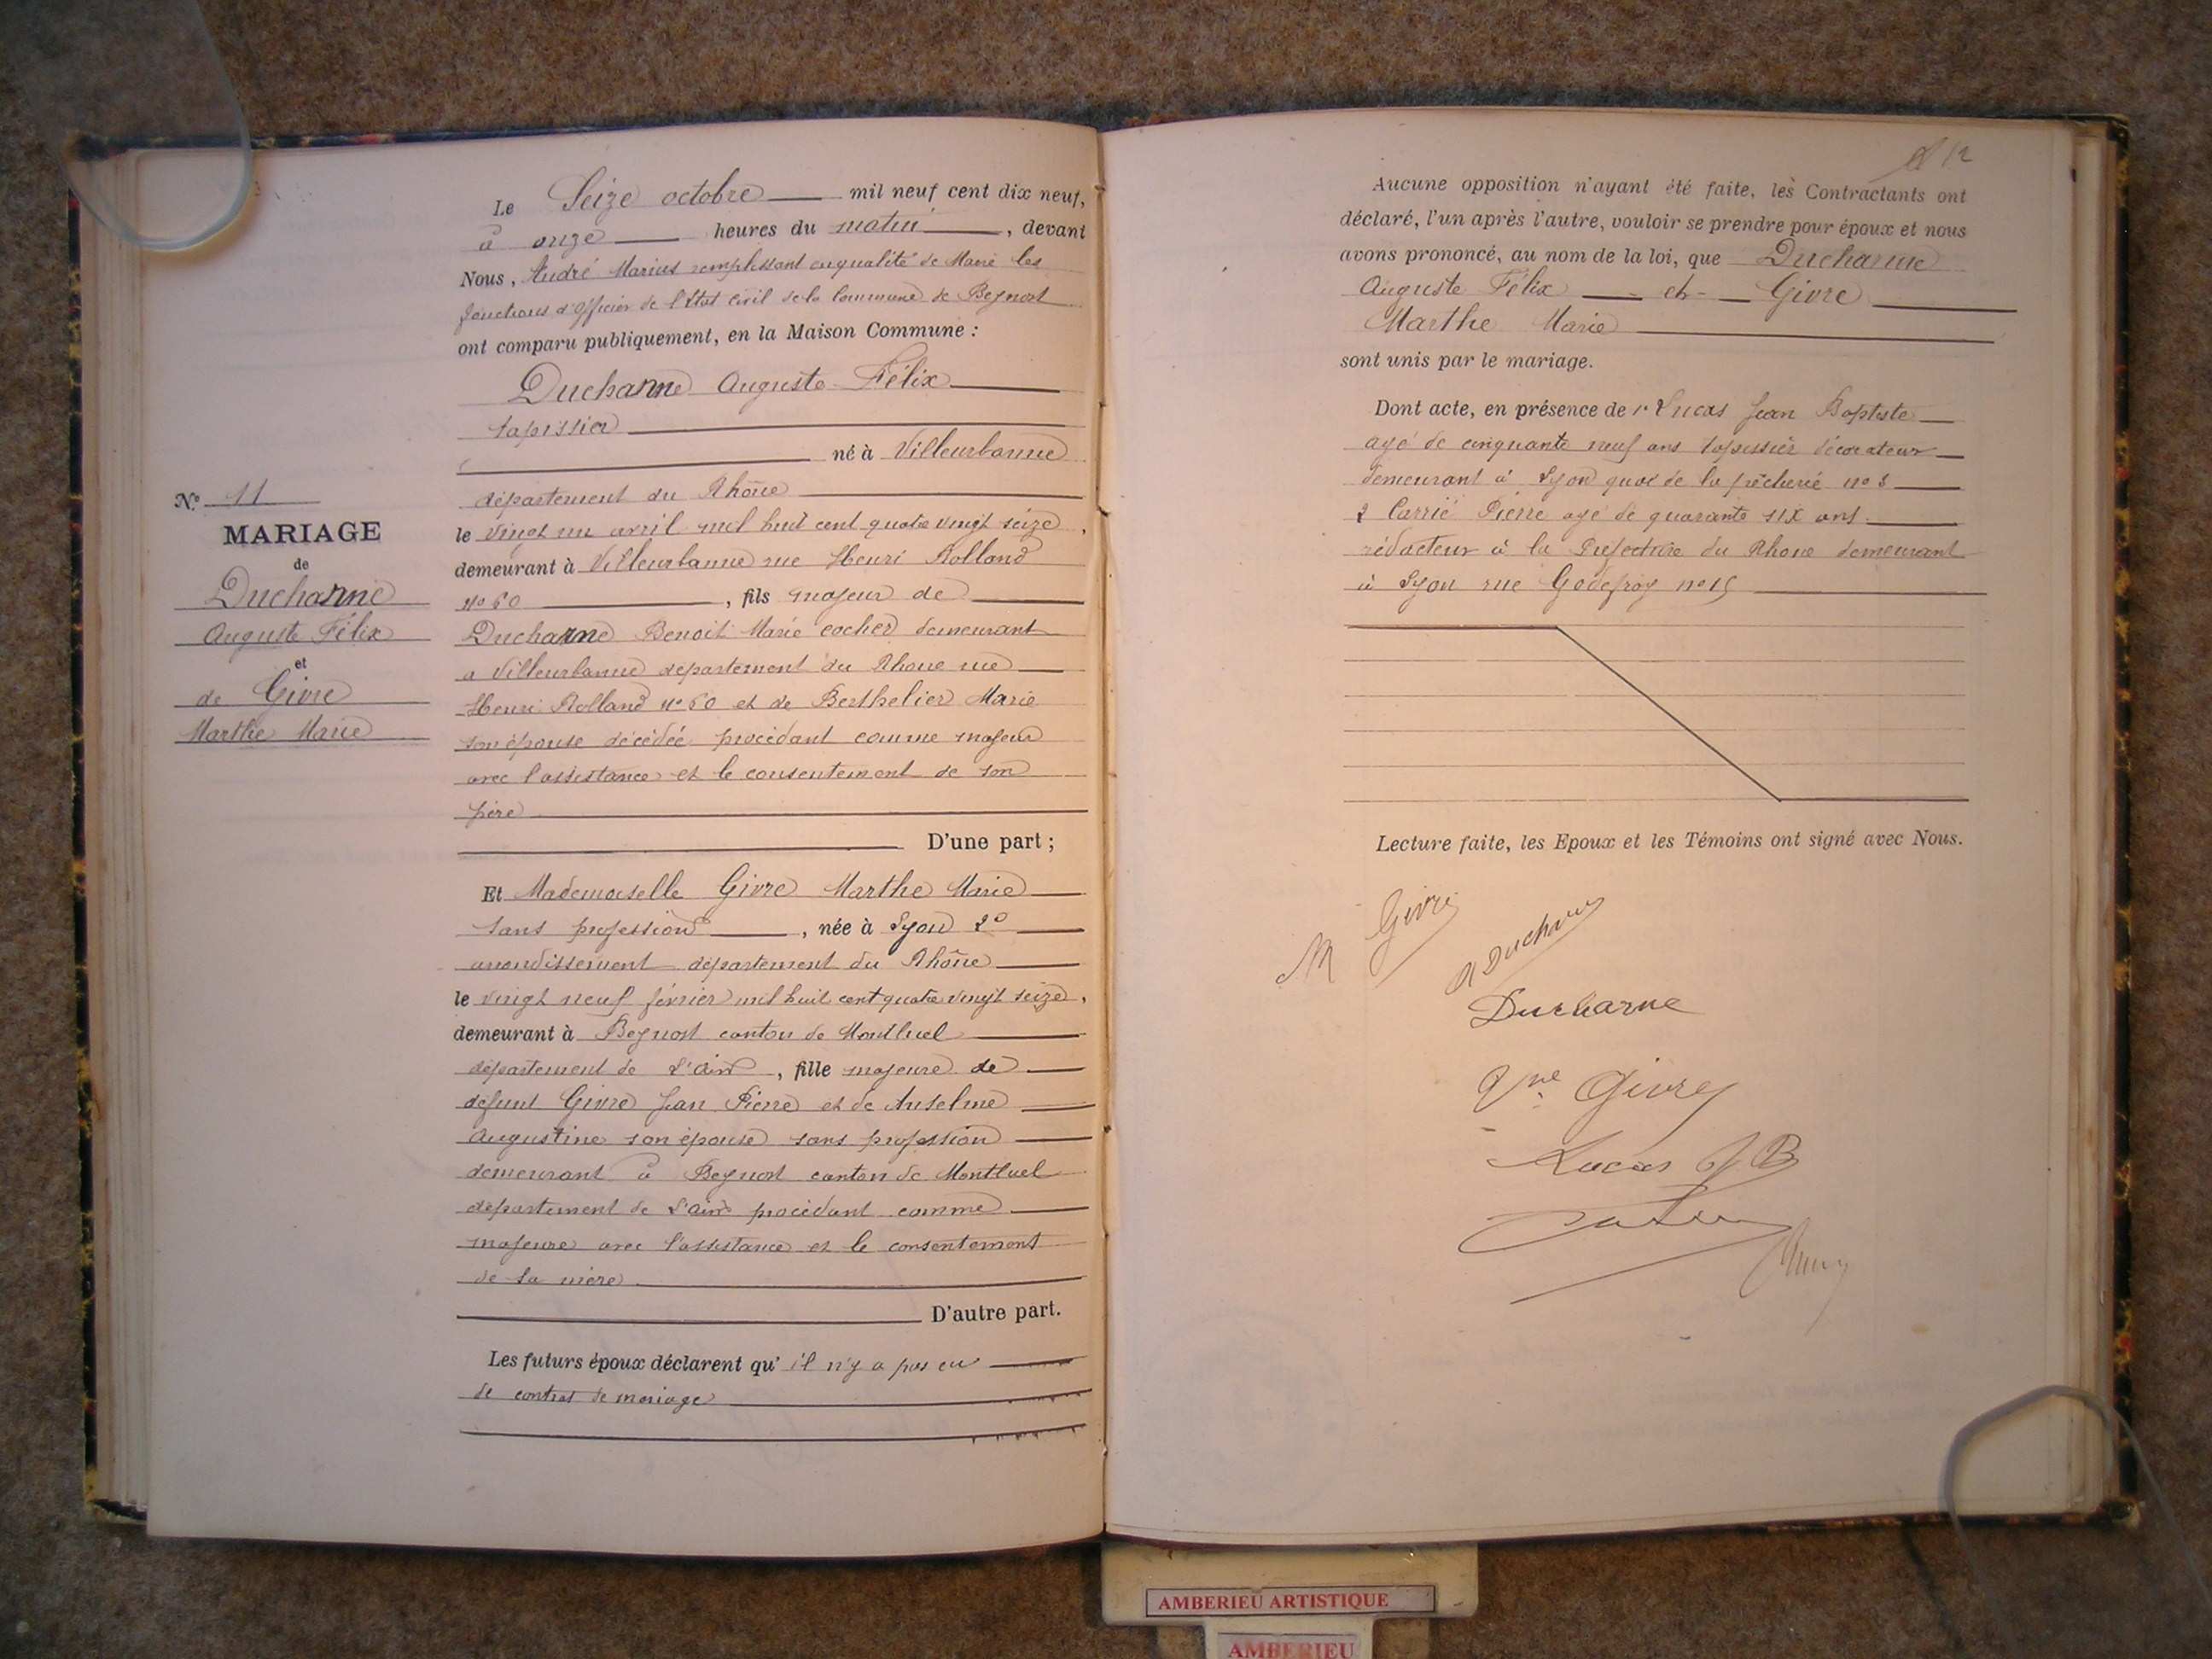 Le Seize octobre mil neuf cent dix neuf,
à onze heures du matin, devant
Nous, André Marius remplissant en qualité de Maire les
fonctions d'officier de l'Etat civil de la Commune de Beynost
ont comparu publiquement, en la Maison Commune :
Ducharne Auguste Félix
tapissier
né à Villeurbanne
département du Rhône
le vingt un avril mil huit cent quatre vingt seize,
demeurant à Villeurbanne rue Henri Rolland
no 60, fils majeur de
Ducharne Benoit Marie cocher demeurant
a Villeurbanne département du Rhone rue
Henri Rolland no 60 et de Berthelier Marie
son épouse décédée procédant comme majeur
avec l'assistance et le consentement de son
père
D'une part ;
Et Mademoiselle Givre Marthe Marie
sans profession, née à Lyon 2e
arrondissement département du Rhône
le vingt neuf février mil huit cent quatre vingt seize,
demeurant à Beynost canton de Montluel
département de L'ain, fille majeure de
défunt Givre Jean Pierre et de Anselme
Augustine son épouse sans profession
demeurant à Beynost canton de Montluel
département de L'ain procédant comme
majeure avec l'assistance et le consentement
de sa mère
D'autre part.
Les futurs époux déclarent qu'il n'y a pas eu
de contrat de mariage
No 11
MARIAGE
de
Ducharne
Auguste Félix
et
de Givre
Marthe Marie
12
Aucune opposition n'ayant été faite, les Contractants ont
déclaré, l'un après l'autre, vouloir se prendre pour époux et nous
avons prononcé, au nom de la loi, que Ducharne
Auguste Félix et Givre
Marthe Marie
sont unis par le mariage.
Dont acte, en présence de 1o Lucas Jean Baptiste
agé de cinquante neuf ans tapissier décorateur
demeurant à Lyon quai de la pêcherie no 8
2 Carrié Pierre agé de quarante six ans
rédacteur à la Préfecture du Rhone demeurant
à Lyon rue Godefroy no 15
Lecture faite, les Epoux et les Témoins ont signé avec Nous.
M Givre
A Ducharne
Ducharne
Vve Givre
Lucas J B
AMBERIEU ARTISTIQUE
AMBERIEU